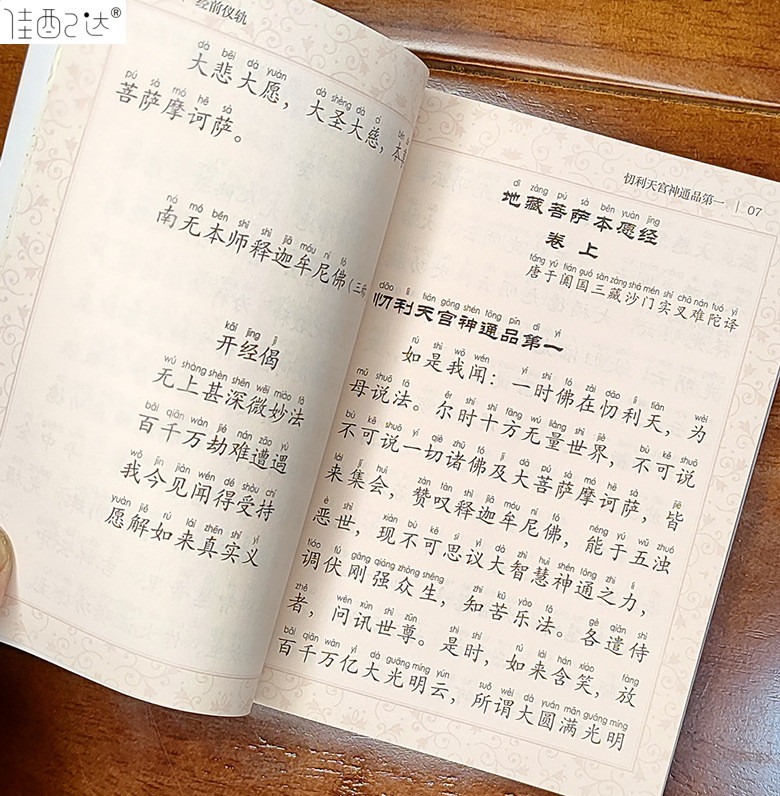 佳配达®
经前仪轨
dà bēi dà yuàn dà shèng dà cí běn
大悲大愿，大圣大慈，本
pú sà mó hē sà
菩萨摩诃萨。
nā mó běn shī shì jiā móu ní fó
南无本师释迦牟尼佛（三
kāi jīng jì
开经偈
wú shàng shèn shēn wēi miào fǎ
无上甚深微妙法
bǎi qiān wàn jié nán zāo yù
百千万劫难遭遇
wǒ jīn jiàn wén dé shòu chí
我今见闻得受持
yuàn jiě rú lái zhēn shí yì
愿解如来真实义
忉利天宫神通品第一 | 07
dì zàng pú sà běn yuàn jīng
地藏菩萨本愿经
卷上
táng yú tián guó sān zàng shā mén shí chā nán tuó yì
唐于阗国三藏沙门实叉难陀译
dāo lì tiān gōng shén tōng pǐn dì yī
忉利天宫神通品第一
rú shì wǒ wén yì shí fó zài dāo lì tiān wèi
如是我闻：一时佛在忉利天，为
mǔ shuō fǎ ěr shí shí fāng wú liàng shì jiè bù kě shuō
母说法。尔时十方无量世界，不可说
bù kě shuō yí qiè zhū fó jí dà pú sà mó hē sà jiē
不可说一切诸佛及大菩萨摩诃萨，皆
lái jí huì zàn tàn shì jiā móu ní fó néng yú wǔ zhuó
来集会，赞叹释迦牟尼佛，能于五浊
è shì xiàn bù kě sī yì dà zhì huì shén tōng zhī lì
恶世，现不可思议大智慧神通之力，
tiáo fú gāng qiáng zhòng shēng zhī kǔ lè fǎ gè qiǎn shì
调伏刚强众生，知苦乐法。各遣侍
zhě wèn xùn shì zūn shì shí rú lái hán xiào fàng
者，问讯世尊。是时，如来含笑，放
bǎi qiān wàn yì dà guāng míng yún suǒ wèi dà yuán mǎn guāng míng
百千万亿大光明云，所谓大圆满光明